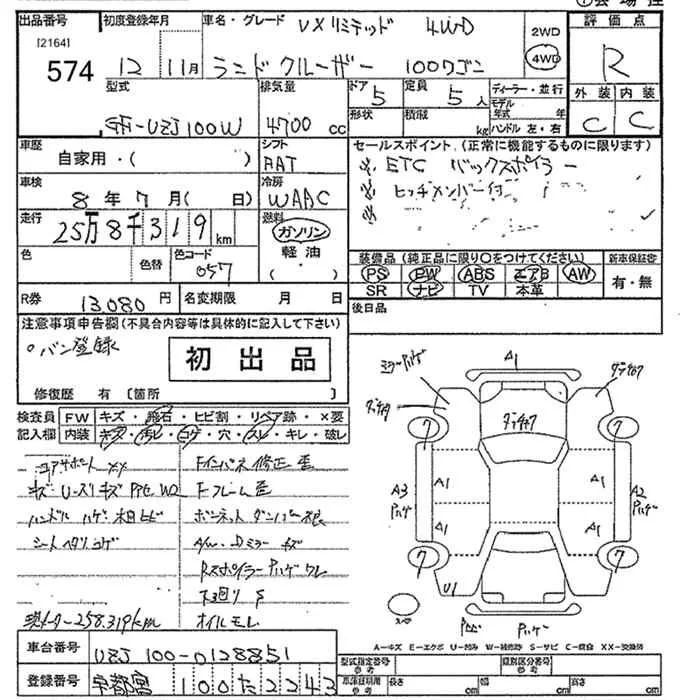 出品番号
[2164]
574
初度登録年月
12 11月
車名・グレード VXリミテッド 4WD
ランドクルーザー 100ワゴン
2WD
4WD
評価点
R
外装 内装
C C
型式
GF-UZJ100W
排気量
4700 cc
ドア 5
定員 5人
形状
積載 kg
ディーラー・並行
モデル年式 年
ハンドル 左・右
車歴
自家用・( )
シフト
FAT
セールスポイント(正常に機能するものに限ります)
ETC バックスポイラー
ヒッチメンバー付
車検
8年 7月( 日)
冷房
WAAC
走行
25万8千319km
燃料
ガソリン
軽油
( )
色
色替
色コード
057
装備品(純正品に限り○をつけてください)
PS PW ABS エアB AW
SR ナビ TV 本革
新車保証書
有・無
R券 13,080円
名変期限 月 日
後日品
注意事項申告欄(不具合内容等は具体的に記入して下さい)
○バン登録
初出品
修復歴 有 〔箇所
検査員記入欄
FW キズ・飛石・ヒビ割・リペア跡・×要
内装 キズ・汚レ・コゲ・穴・スレ・キレ・破レ
コアサポート XX
ハンドル ハゲ・木目ヒビ
シートヘタリ コゲ
Fインパネ修正歪
Fフレーム歪
ボンネットダンパー
A/W・Dミラー キズ
Rスポイラーハゲ ワレ
下廻り S
オイルモレ
258,319km
ミラーハゲ
A1
タッチアップ
A1 A1
A3
ハゲ
A1 A1
A2
ハゲ
7 7
7 7
U1
A-キズ E-エクボ U-凹み W-補修跡 S-サビ C-腐食 XX-交換済
車台番号 UZJ 100-0128851
登録番号 宇都宮 100 た 2243
型式指定番号 参考
類別区分番号 参考
車庫証明用 参考
長さ cm 幅 cm 高さ cm